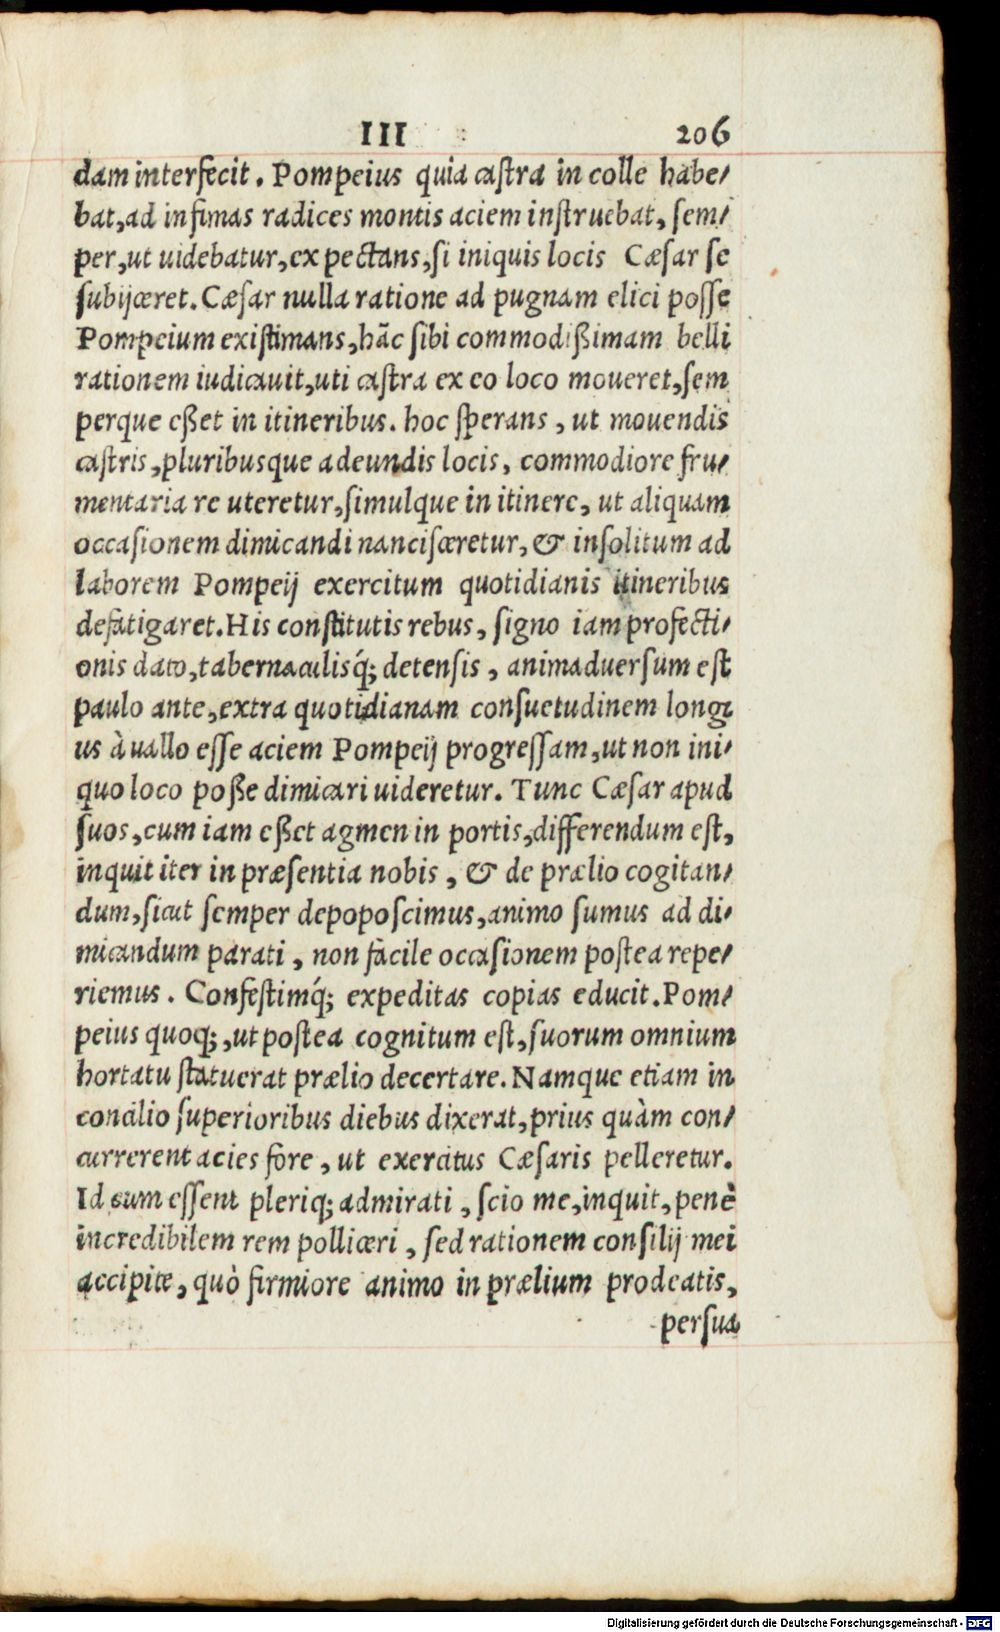 III 206
dam interfecit. Pompeius quia castra in colle habe/
bat, ad infimas radices montis aciem instruebat, sem/
per, ut uidebatur, expectans, si iniquis locis Cæsar se
subijceret. Cæsar nulla ratione ad pugnam elici posse
Pompeium existimans, hãc sibi commodißimam belli
rationem iudicauit, uti castra ex eo loco moueret, sem
perque eßet in itineribus. hoc sperans, ut mouendis
castris, pluribusque adeundis locis, commodiore fru/
mentaria re uteretur, simulque in itinere, ut aliquam
occasionem dimicandi nancisceretur, & insolitum ad
laborem Pompeij exercitum quotidianis itineribus
defatigaret. His constitutis rebus, signo iam profecti/
onis dato, tabernaculisq́; detensis, animaduersum est
paulo ante, extra quotidianam consuetudinem longi
us à uallo esse aciem Pompeij progressam, ut non ini/
quo loco poße dimicari uideretur. Tunc Cæsar apud
suos, cum iam eßet agmen in portis, differendum est,
inquit iter in præsentia nobis, & de prælio cogitan/
dum, sicut semper depoposcimus, animo sumus ad di/
micandum parati, non facile occasionem postea repe/
riemus. Confestimq́; expeditas copias educit. Pom/
peius quoq;, ut postea cognitum est, suorum omnium
hortatu statuerat prælio decertare. Namque etiam in
concilio superioribus diebus dixerat, prius quàm con/
currerent acies fore, ut exercitus Cæsaris pelleretur.
Id cum essent pleriq; admirati, scio me, inquit, penè
incredibilem rem polliceri, sed rationem consilij mei
accipite, quò firmiore animo in prælium prodeatis,
persua
Digitalisierung gefördert durch die Deutsche Forschungsgemeinschaft - DFG